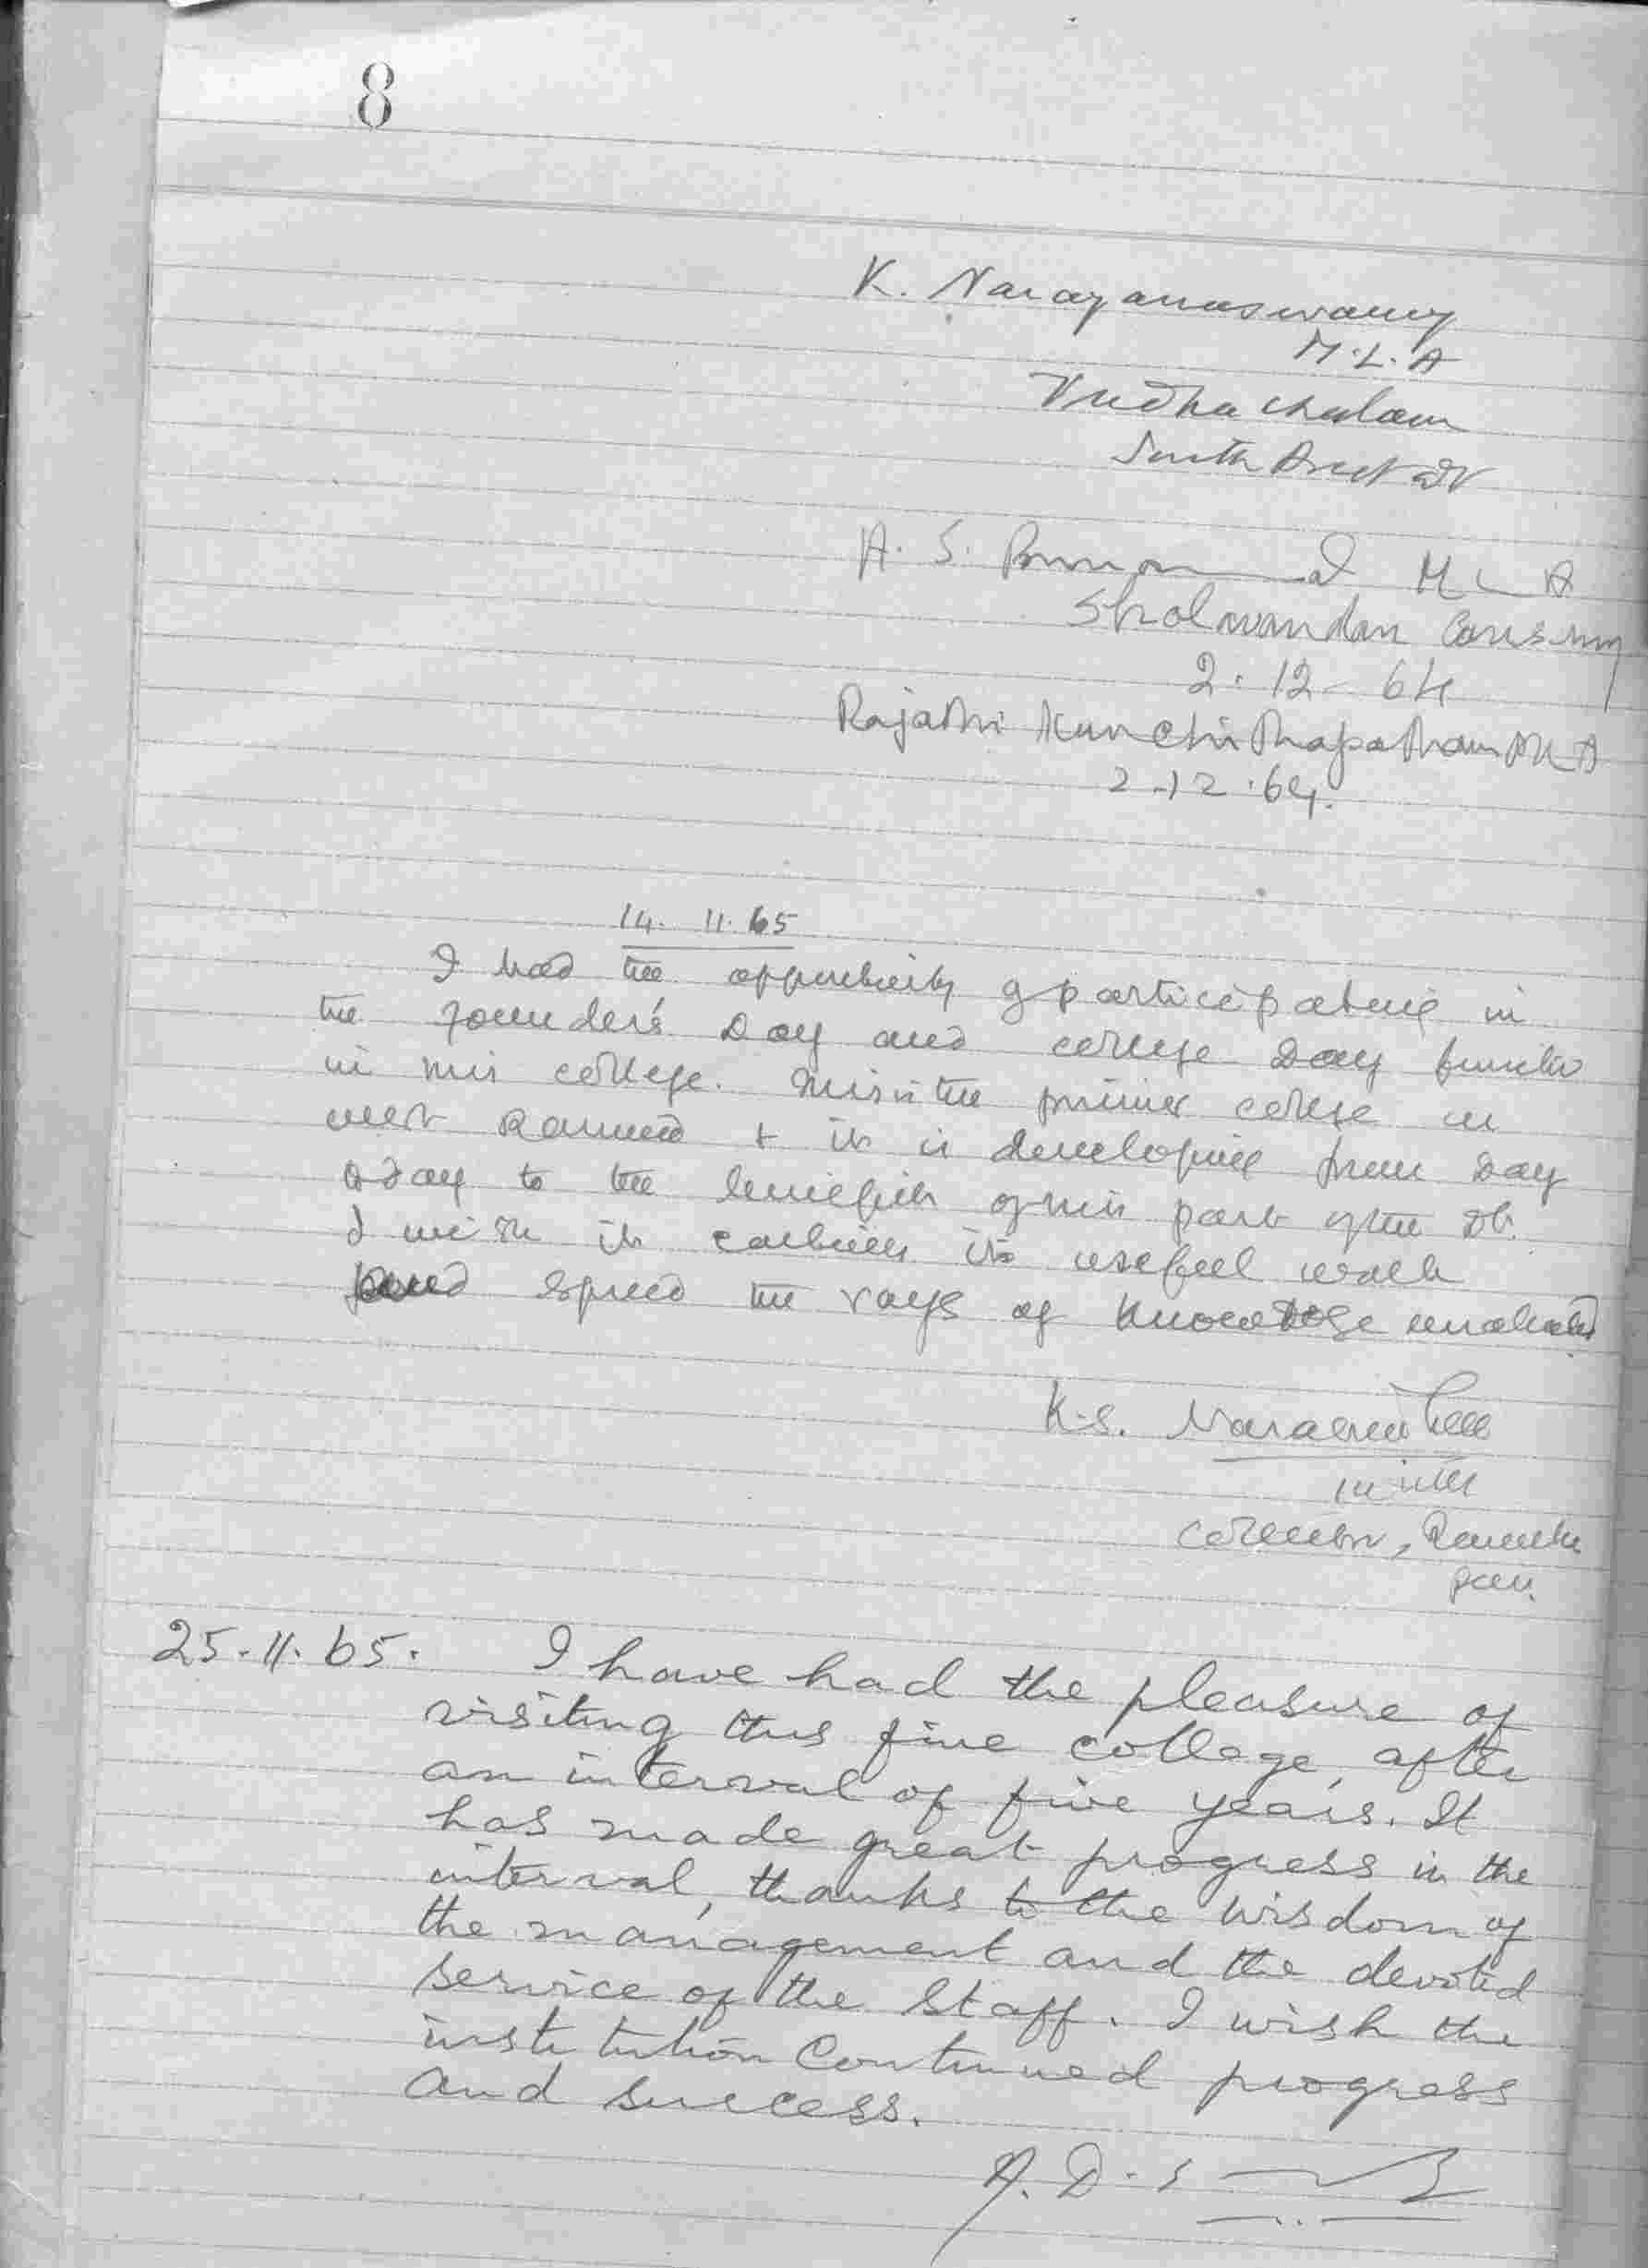 8
K. Narayanaswamy
M.L.A
Vridhachalam
South Arcot Dt
A. S. M L A
Sholavandan
2.12-64
Rajathi Kunchithapatham MLA
2-12.64.
14. 11. 65
I had the opportunity of participating in
the founder's Day and college Day
in this college. This is the premier college in
west Ramnad & it is developing from Day
to day to the benefit of this part of the Dt.
I wish it continues its useful work
and spread the rays of knowledge
K.S.
Collector,
25.11.65. I have had the pleasure of
visiting this fine college, after
an interval of five years. It
has made great progress in the
interval, thanks to the wisdom of
the management and the devoted
service of the staff. I wish the
institution Continued progress
and success.
A. D.